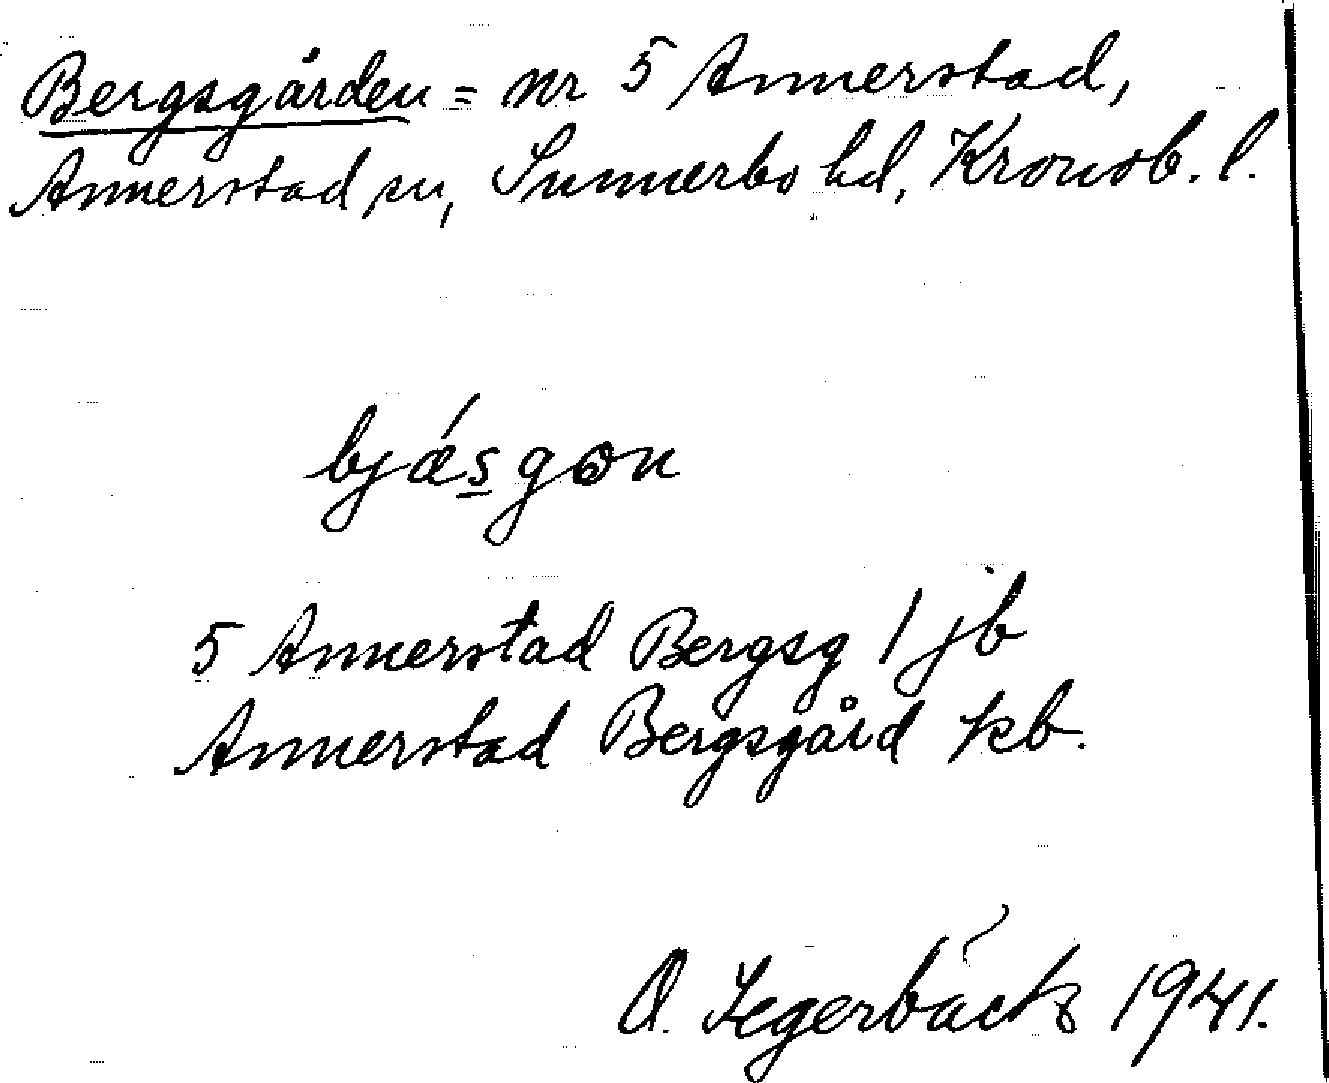 Bergsgården = nr 5 Annerstad,
Annerstad sn, Sunnerbo hd, Kronob. l.
bjǽs̲gɷn
5 Annerstad Bergsg / jb
Annerstad Bergsgård kb.
O. Segerbäck 1941.